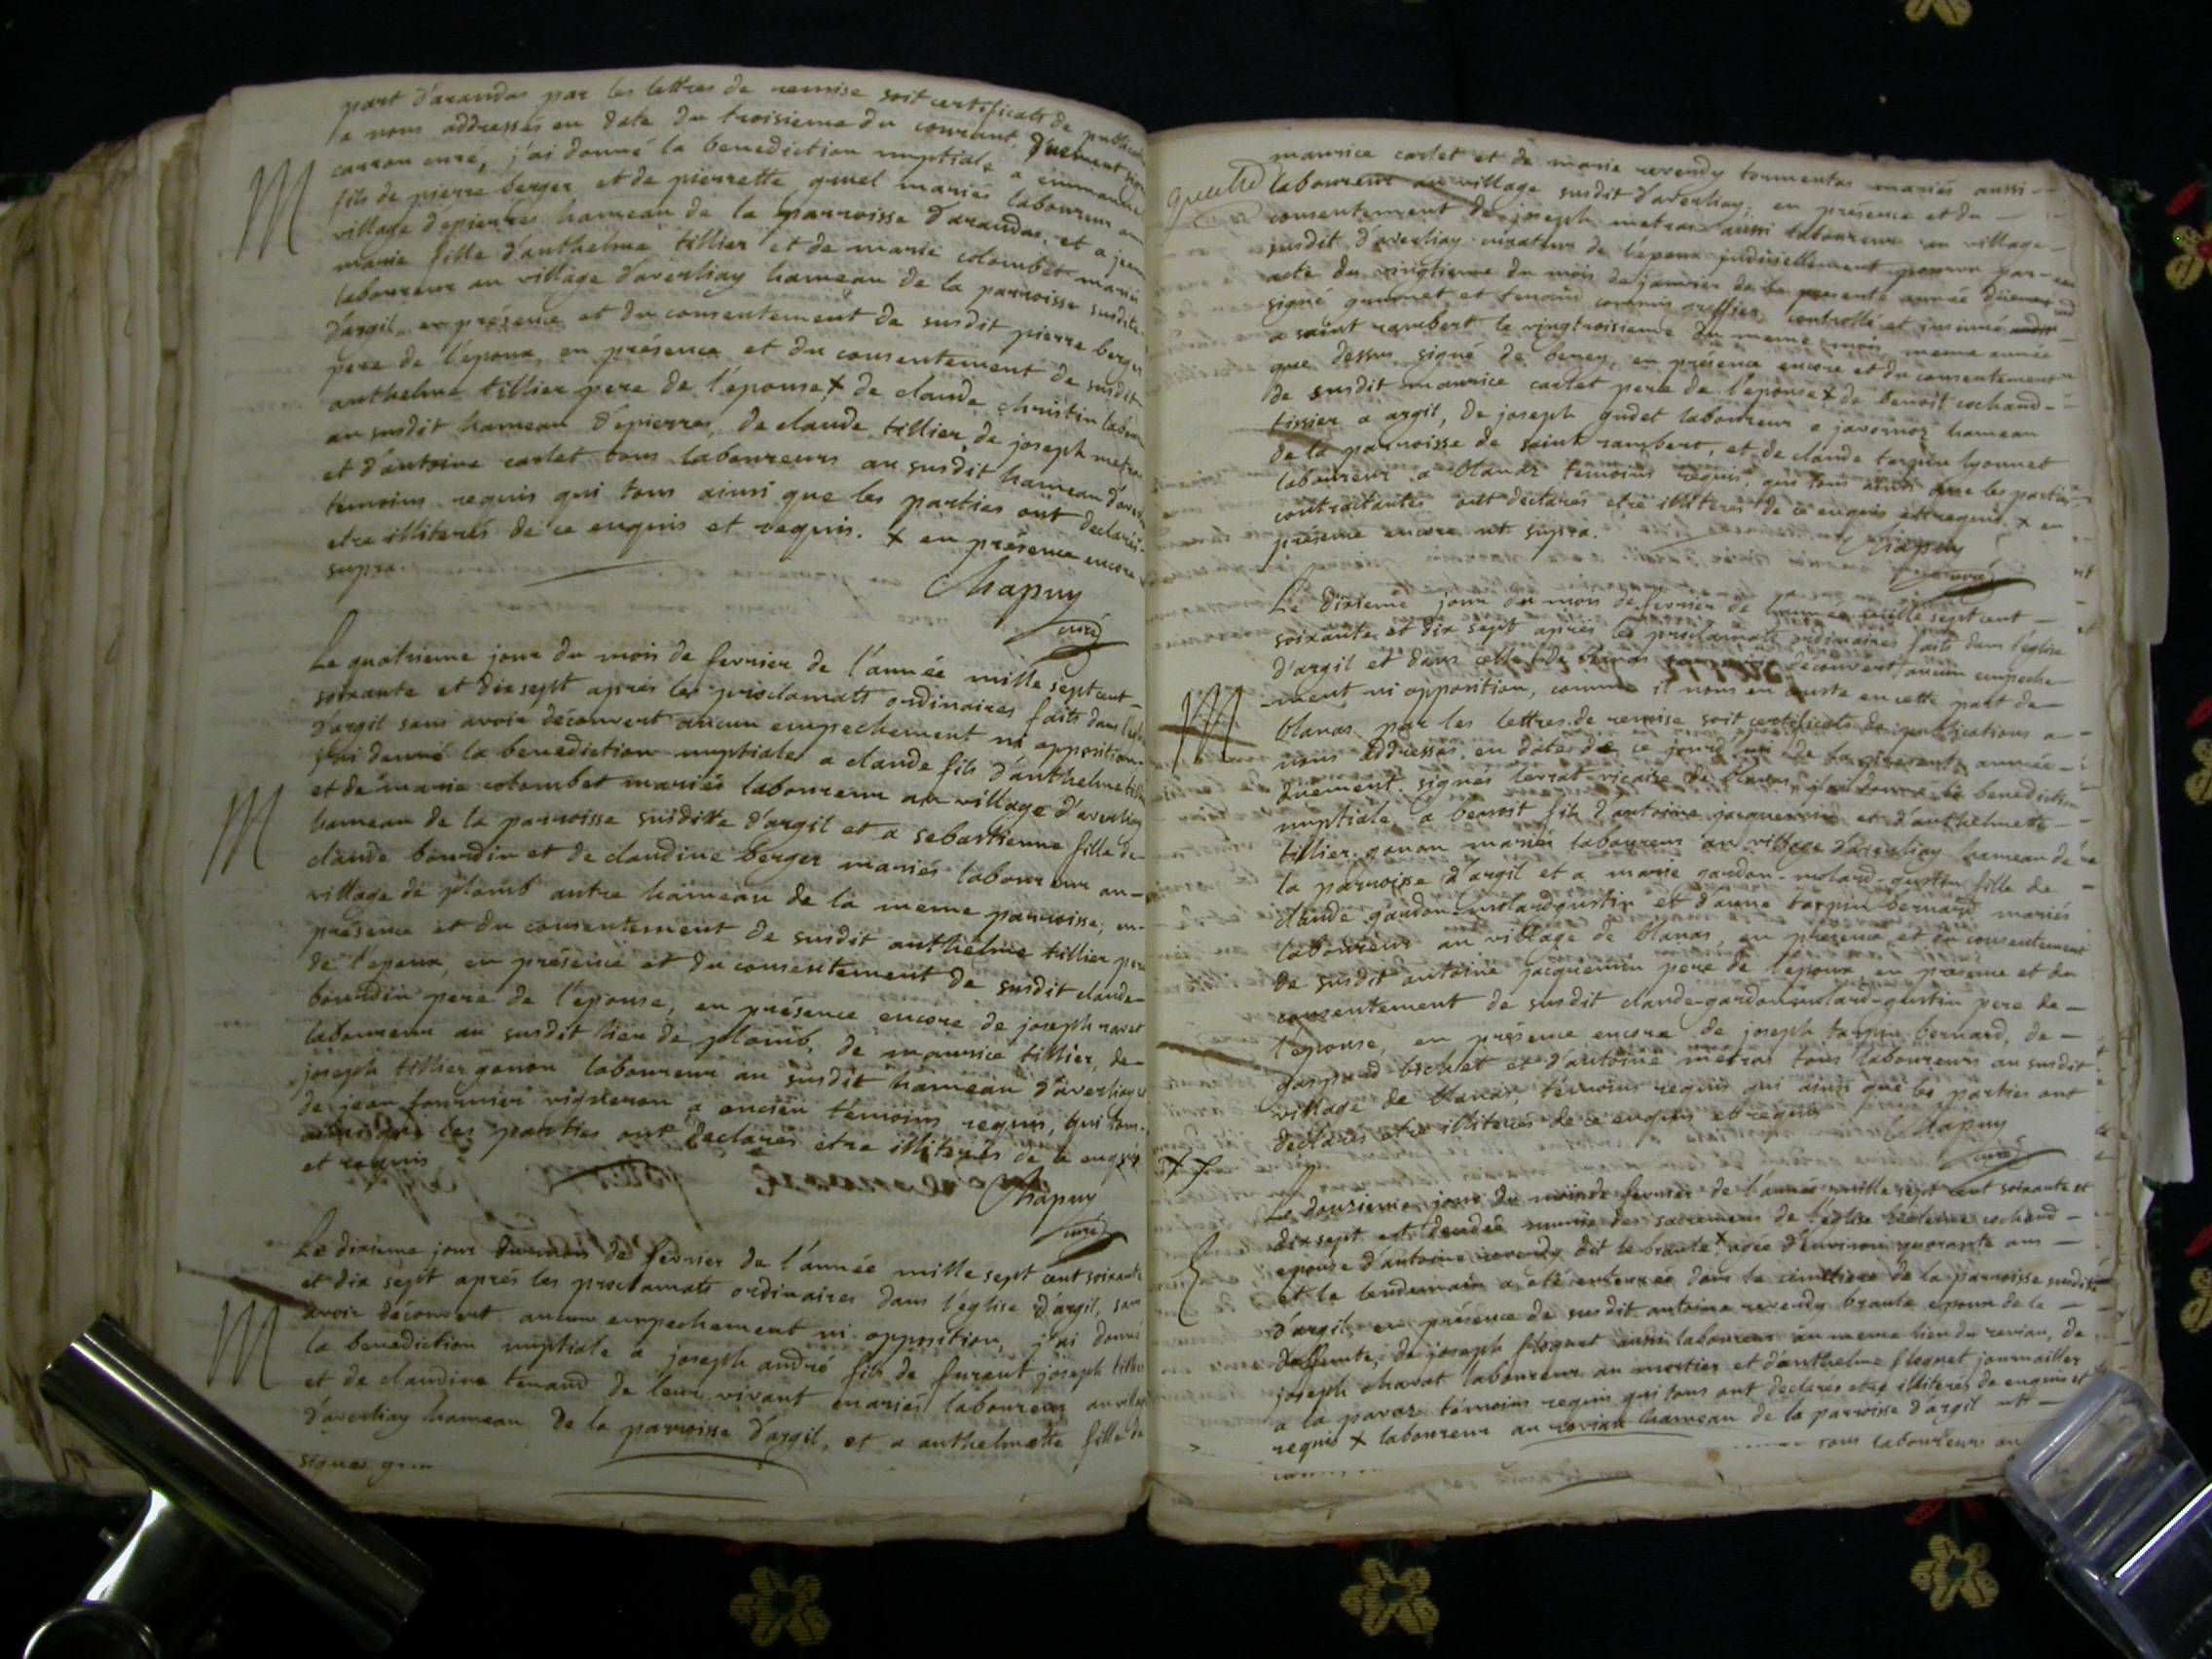 part d'arandas par les lettres de remise soit certificats de
a nous addressés en date du troisieme du courant, duement
carron curé, j'ai donné la benediction nuptiale a
M
fils de pierre berger et de pierrette mariés laboureur au
village depierres hameau de la parroisse d'arandas, et a
marie fille d'anthelme tillier et de marie colombet mariés
laboureur au village d'averliay hameau de la parroisse susdite
d'argil, en présence et du consentement de susdit pierre berger
pere de l'epoux, en présence et du consentement de susdit
anthelme tillier pere de l'epouse, x de claude christin
au susdit hameau d'epierres, de claude tillier, de joseph metras
et d'antoine carlet tous laboureurs au susdit hameau
témoins requis qui tous ainsi que les parties ont declarés
etre illiterés de ce enquis et requis. x en présence encore
supra.
Chapuy
curé
Le quatrieme jour du mois de fevrier de l'année mille sept cent
soixante et dix sept après les proclamats ordinaires faits dans
d'argil sans avoir découvert aucun empechement ni opposition
j'ai donné la benediction nuptiale a claude fils d'anthelme
M
et de marie colombet mariés laboureur au village d'averliay
hameau de la parroisse susditte d'argil et a sebastienne fille de
claude bourdin et de claudine berger mariés laboureur au
village de plomb autre hameau de la meme parroisse, en
présence et du consentement de susdit anthelme tillier pere
de l'epoux, en présence et du consentement de susdit claude
bourdin pere de l'epouse, en présence encore de joseph ravet
laboureur au susdit lieu de plomb, de maurice tillier, de
joseph tillier gonon laboureur au susdit hameau d'averliay
de jean fournier vigneron a oncieu témoins requis, qui tous
ainsi que les parties ont declarés etre illiterés de ce enquis
et requis
Chapuy
curé
Le dixieme jour du mois de fevrier de l'année mille sept cent soixante
et dix sept après les proclamats ordinaires dans l'église d'argil, sans
M
avoir découvert aucun empechement ni opposition, j'ai donné
la benediction nuptiale a joseph andré fils de furent joseph tillier
et de claudine tenand de leur vivant mariés laboureur au
d'averliay hameau de la parroisse d'argil, et a anthelmette fille de
maurice carlet et de marie revendy tormentas mariés aussi
laboureur au village susdit d'averliay; en présence et du
consentement de joseph metras aussi laboureur au village
susdit d'averliay curateur de l'epoux judiciellement pourvu par
acte du vingtieme du mois de janvier de la presente année
signé grumet et tenand commis greffier, controllé et insinué
a saint rambert le vingtroisieme du meme mois meme année
que dessus signé de beney, en présence encore et du consentement
de susdit maurice carlet pere de l'epouse x de benoit cochand
tissier a argil, de joseph gudet laboureur a javornoz hameau
de la parroisse de saint rambert, et de claude tarpin lyonnet
laboureur a blanas temoins requis, qui tous ainsi que les parties
contractantes ont declarés etre illiterés de ce enquis et requis. x en
présence encore ut supra.
Chapuy
curé
Le dixieme jour du mois de fevrier de l'année mille sept cent
soixante et dix sept après les proclamats ordinaires faits dans l'église
d'argil et dans celle de blanas découvert aucun empeche
M
-ment ni opposition, comme il nous en conste en cette part de
blanas par les lettres de remise soit certificats de publications a
nous addressés en date de ce jourd'hui de la présente année
duement signés vicaire de blanas, j'ai donné la benediction
nuptiale a benoit fils d'antoine jacquemin et d'anthelmette
tillier gonon mariés laboureur au village d'averliay hameau de
la parroisse d'argil et a marie gardon-molard-gustin fille de
claude gardon-molard gustin et d'anne tarpin bernard mariés
laboureur au village de blanas, en présence et du consentement
de susdit antoine jacquemin pere de l'epoux, en présence et du
consentement de susdit claude-gardon-molard-gustin pere de
l'epouse, en présence encore de joseph tarpin bernard, de
gaspard bichet et d'antoine metras tous laboureurs au susdit
village de blanas, témoins requis qui ainsi que les parties ont
declarés etre illiterés de ce enquis et requis
Chapuy
curé
Le douzieme jour du mois de fevrier de l'année mille sept cent soixante et
dix sept est decedée munie des sacremens de l'église cochand
epouse d'antoine revendy dit le braute x agée d'environ quarante ans
et le lendemain a été enterrée dans le cimetiere de la parroisse susdite
d'argil, en présence de susdit antoine revendy braute epoux de la
deffunte, de joseph floquet aussi laboureur au meme lieu du revian, de
joseph charat laboureur au mortier et d'anthelme floquet journailler
a la pavaz témoins requis qui tous ont declarés etre illiterés de enquis et
requis x laboureur au revian hameau de la parroisse d'argil
tous laboureurs au